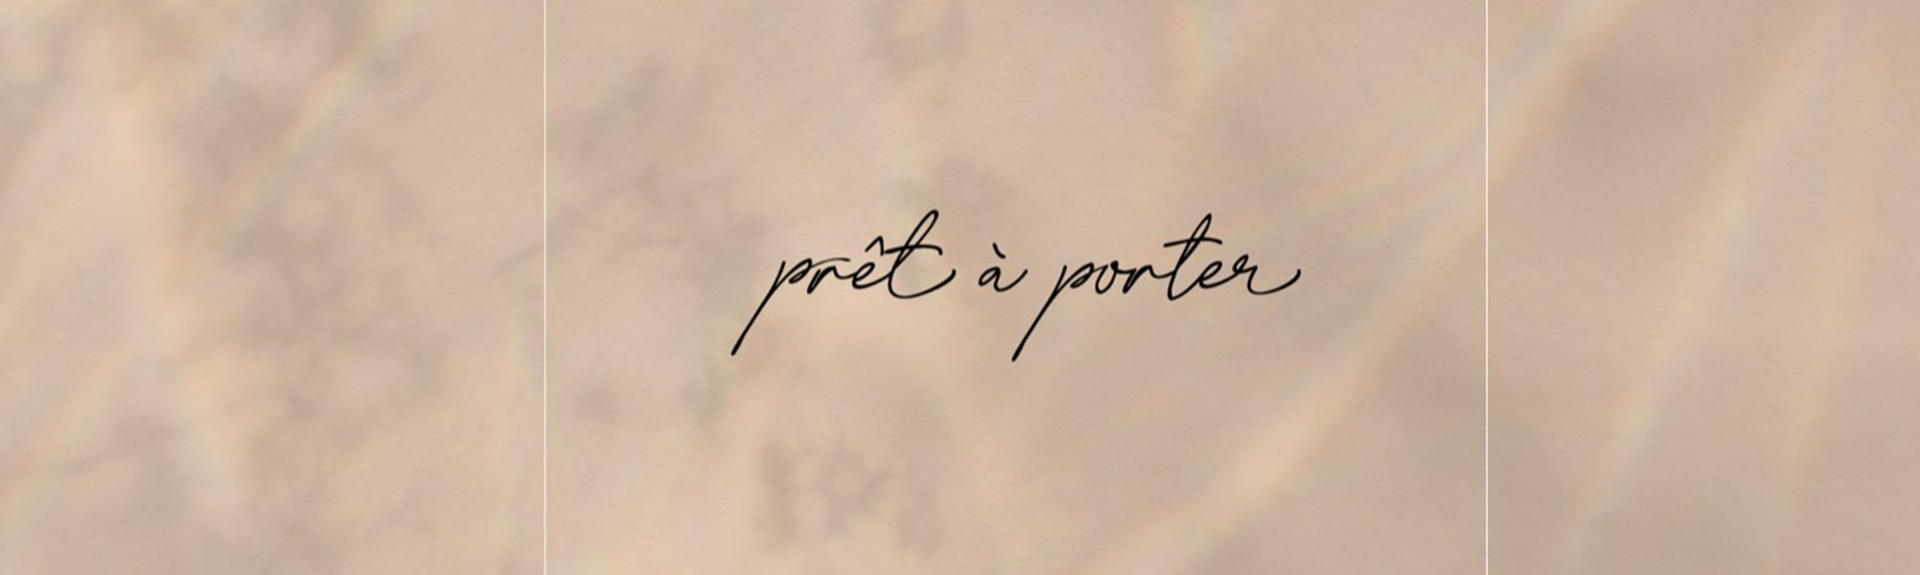 prêt à porter